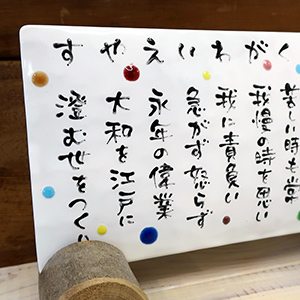 くがわいえやす
苦しい時も常
我慢の時を思い
我に責負い
急がず怒らず
永年の偉業
大和を江戸に
澄む世をつく